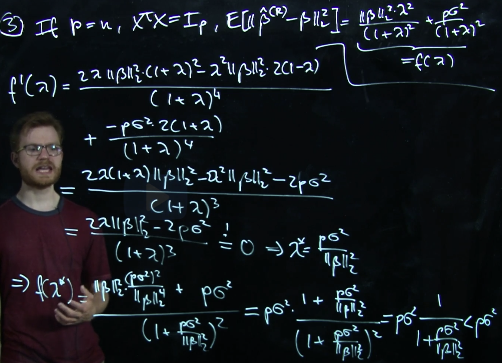 ③ If p=n, XᵀX=I_p, E[‖β̂^(R)-β‖₂²] = ‖β‖₂²·λ²/(1+λ)² + pσ²/(1+λ)²
=f(λ)
f'(λ) = (2λ‖β‖₂²·(1+λ)²-λ²‖β‖₂²·2(1-λ))/(1+λ)⁴
+ (-pσ²·2(1+λ))/(1+λ)⁴
= (2λ(1+λ)‖β‖₂²-2λ²‖β‖₂²-2pσ²)/(1+λ)³
= (2λ‖β‖₂²-2pσ²)/(1+λ)³ =! 0 ⇒ λ* = pσ²/‖β‖₂²
⇒ f(λ*) = (‖β‖₂²·(pσ²)²/‖β‖₂⁴ + pσ²)/(1+pσ²/‖β‖₂²)² = pσ²·(1+pσ²/‖β‖₂²)/(1+pσ²/‖β‖₂²)² = pσ²·1/(1+pσ²/‖β‖₂²) < pσ²